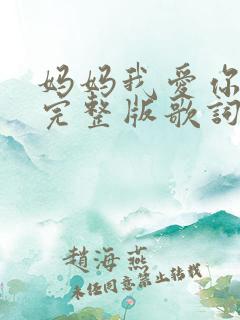 妈妈我爱你
完整版歌詞
趙海燕
未经同意禁止转载